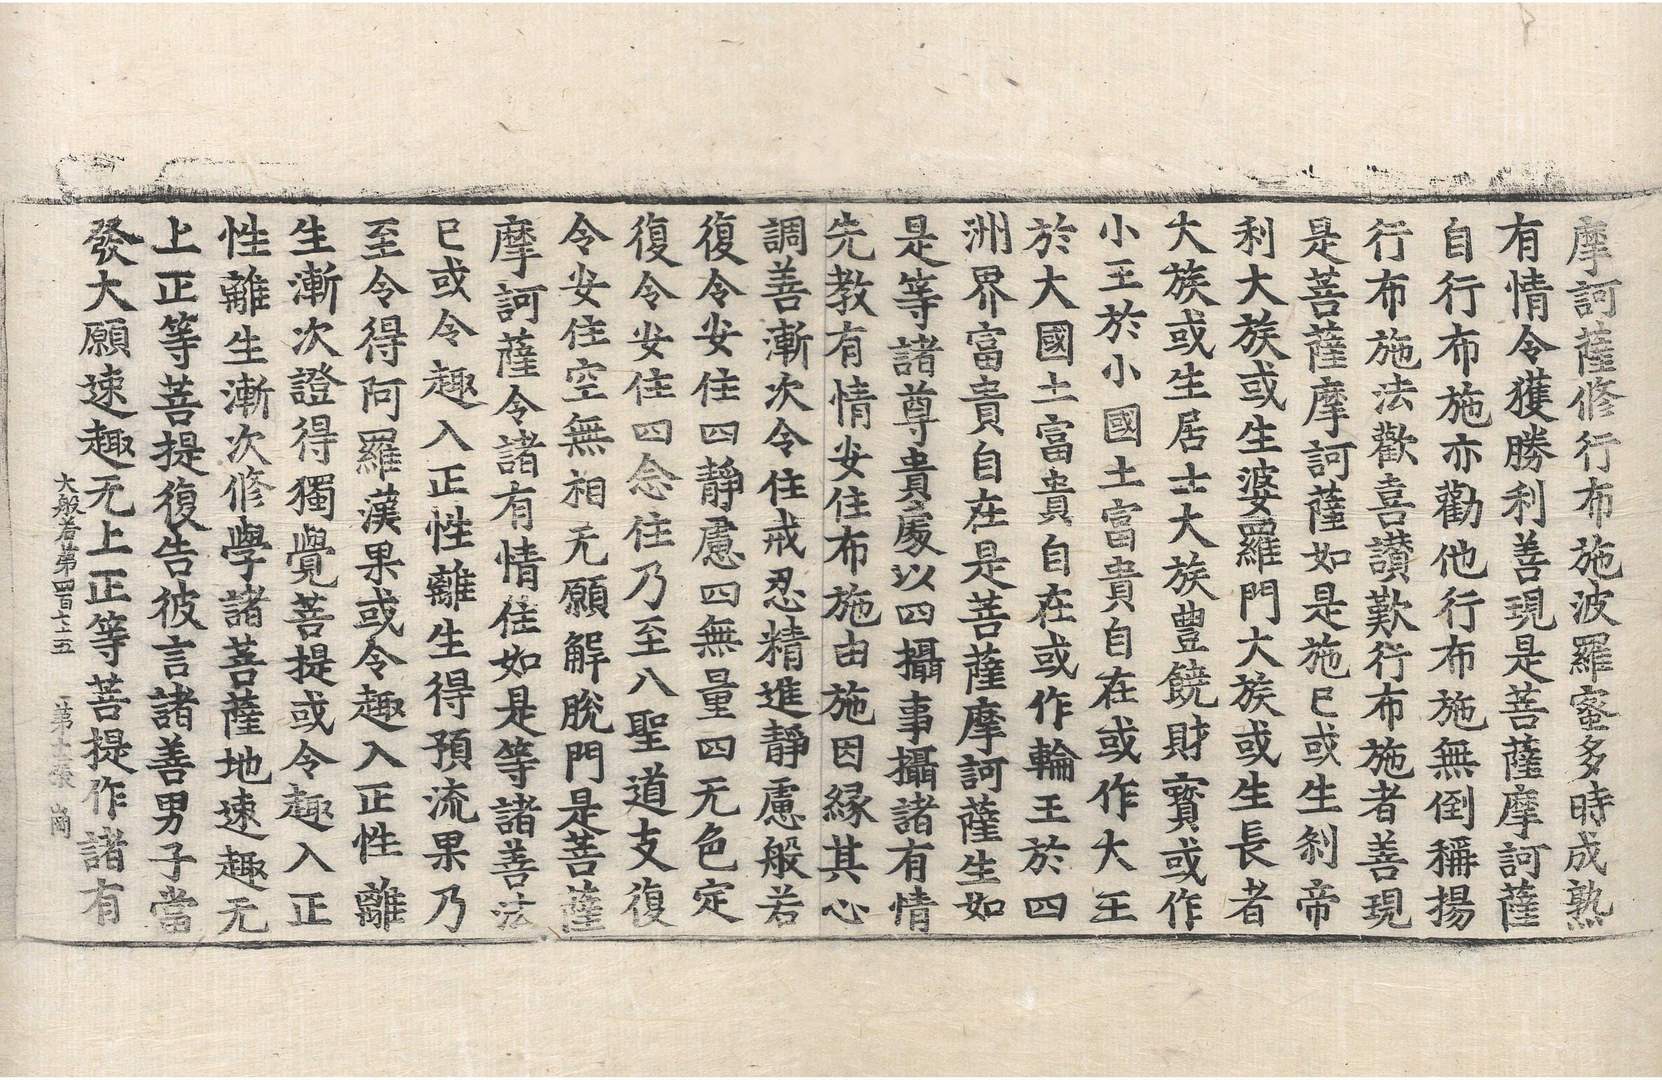 摩訶薩修行布施波羅蜜多時成熟
有情令獲勝利善現是菩薩摩訶薩
自行布施亦勸他行布施無倒稱揚
行布施法歡喜讃歎行布施者善現
是菩薩摩訶薩如是施已或生剎帝
利大族或生婆羅門大族或生長者
大族或生居士大族豊饒財寶或作
小王於小國土富貴自在或作大王
於大國土富貴自在或作輪王於四
洲界富貴自在是菩薩摩訶薩生如
是等諸尊貴處以四攝事攝諸有情
先教有情安住布施由施因縁其心
調善漸次令住戒忍精進靜慮般若
復令安住四靜慮四無量四无色定
復令安住四念住乃至八聖道支復
令安住空無相无願解脫門是菩薩
摩訶薩令諸有情住如是等諸善法
已或令趣入正性離生得預流果乃
至令得阿羅漢果或令趣入正性離
生漸次證得獨覺菩提或令趣入正
性離生漸次修學諸菩薩地速趣无
上正等菩提復告彼言諸善男子當
發大願速趣无上正等菩提作諸有
大般若第四百七十五 第十張 崗